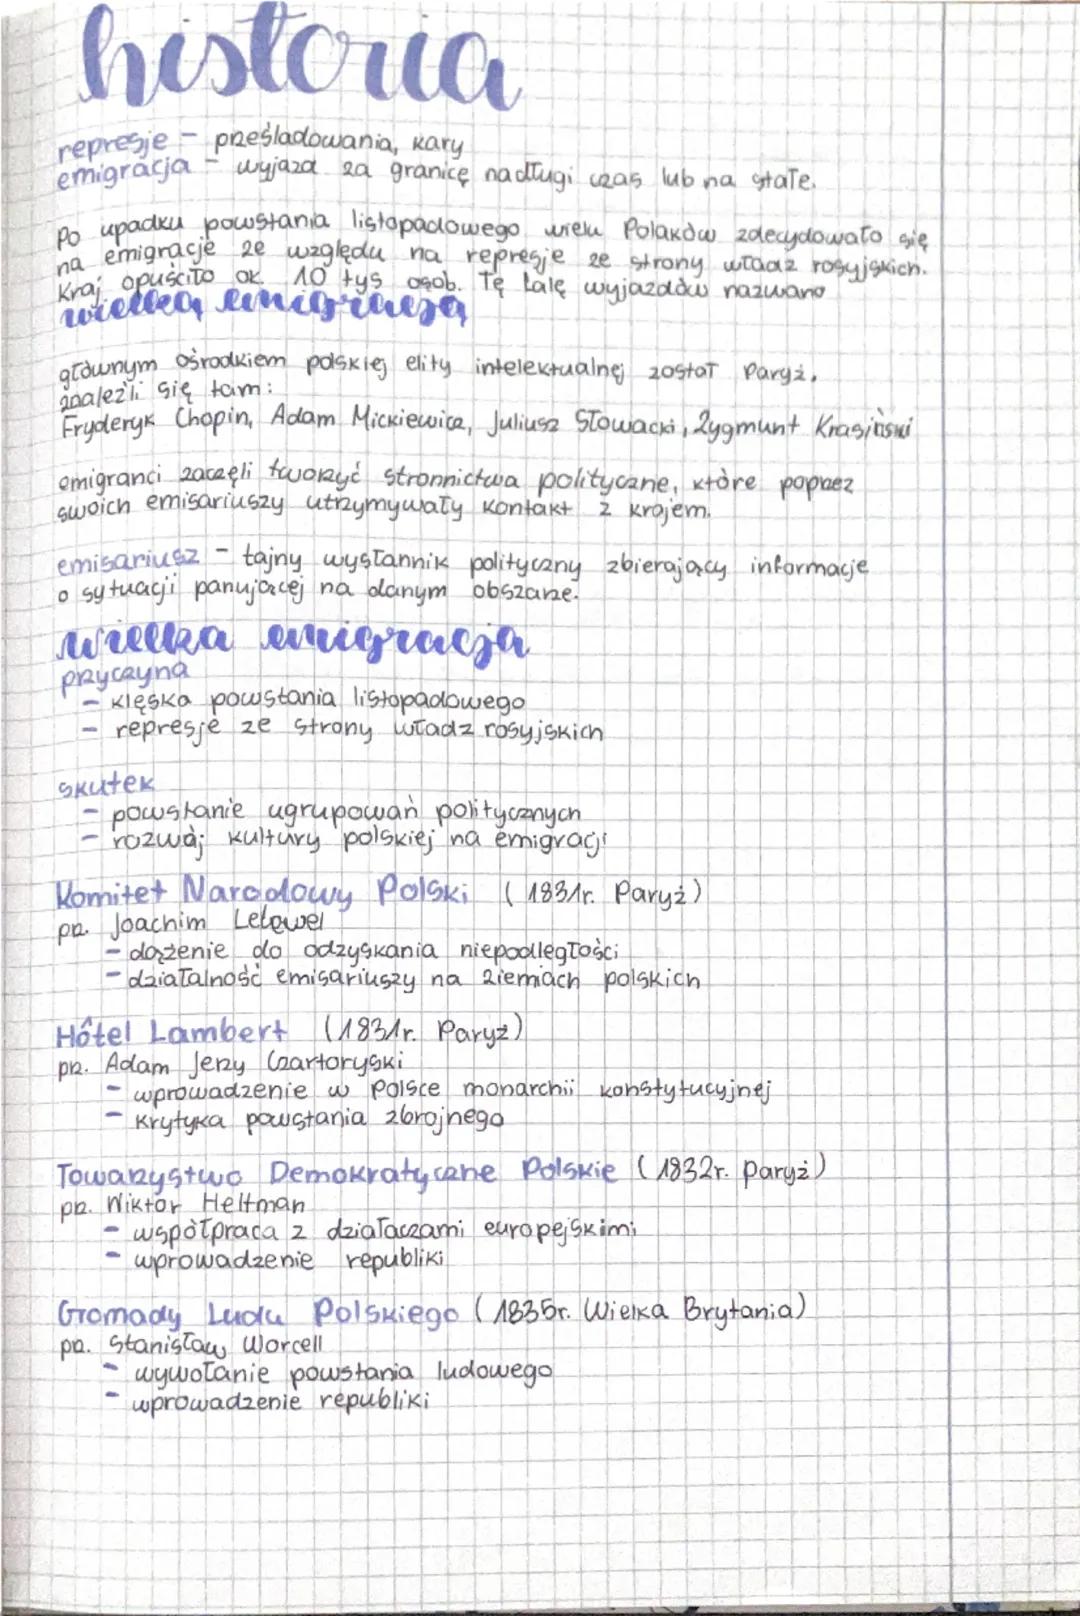 historia
represje - prześladowania, kary
emigracja - wyjazd za granicę na długi czas lub na stałe.
Po upadku powstania listopadowego wielu Polaków zdecydowało się
na emigracje ze względu na represje ze strony władz rosyjskich.
Kraj opuściło ok. 10 tys osób. Tę falę wyjazdów nazwano
wielką emigracją
głównym ośrodkiem polskiej elity intelektualnej został Paryż.
znaleźli się tam:
Fryderyk Chopin, Adam Mickiewicz, Juliusz Słowacki, Zygmunt Krasiński
emigranci zaczęli tworzyć stronnictwa polityczne, które poprzez
swoich emisariuszy utrzymywały kontakt z krajem.
emisariusz - tajny wysłannik polityczny zbierający informacje
o sytuacji panującej na danym obszarze.
wielka emigracja
przyczyna
- klęska powstania listopadowego
- represje ze strony władz rosyjskich
skutek
- powstanie ugrupowań politycznych
- rozwój kultury polskiej na emigracji
Komitet Narodowy Polski (1831r. Paryż)
prz. Joachim Lelewel
- dążenie do odzyskania niepodległości
- działalność emisariuszy na ziemiach polskich
Hôtel Lambert (1831r. Paryż)
prz. Adam Jerzy Czartoryski
- wprowadzenie w Polsce monarchii konstytucyjnej
- krytyka powstania zbrojnego
Towarzystwo Demokratyczne Polskie (1832r. Paryż)
prz. Wiktor Heltman
- współpraca z działaczami europejskimi
- wprowadzenie republiki
Gromady Ludu Polskiego (1835r. Wielka Brytania)
prz. Stanisław Worcell
- wywołanie powstania ludowego
- wprowadzenie republiki